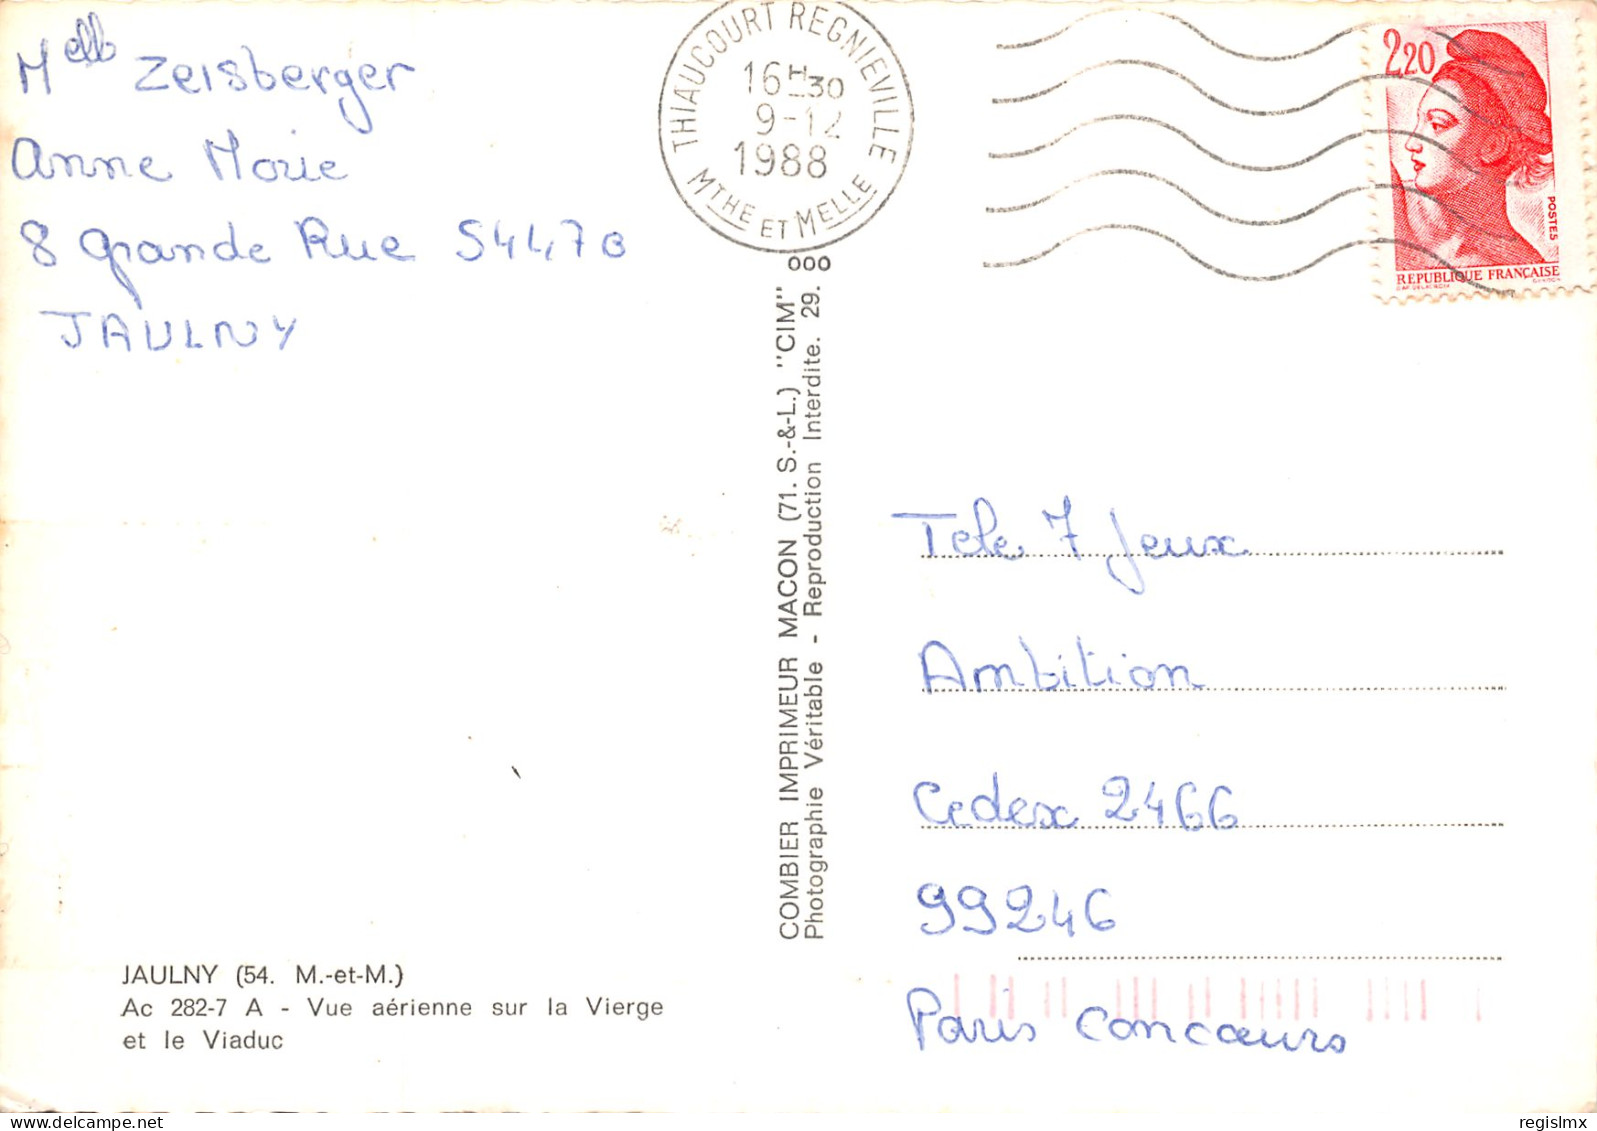 Melle Zeisberger
Anne Marie
8 Grande Rue 54470
JAULNY
THIAUCOURT REGNIEVILLE
16H30
9-12
1988
MTHE ET MELLE
2,20
POSTES
REPUBLIQUE FRANÇAISE
COMBIER IMPRIMEUR MACON (71. S.-&-L.) "CIM"
Photographie Véritable - Reproduction Interdite. 29. 000
Tele 7 Jeux
Ambition
Cedex 2466
99246
Paris concours
JAULNY (54. M.-et-M.)
Ac 282-7 A - Vue aérienne sur la Vierge
et le Viaduc
regislmx